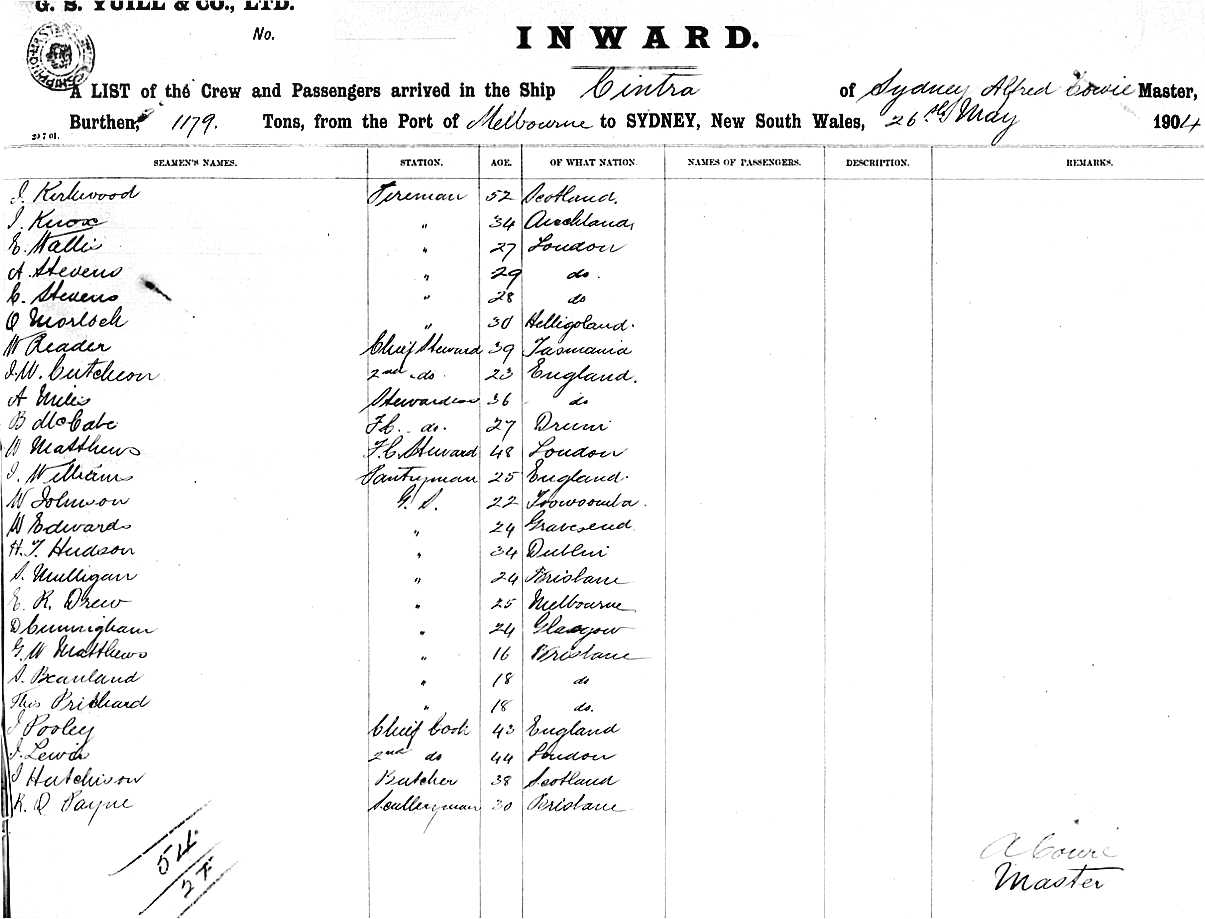 G. S. YUILL & CO., LTD.
No.
INWARD.
A LIST of the Crew and Passengers arrived in the Ship Cintra of Sydney Alfred Cowie Master,
Burthen, 1179. Tons, from the Port of Melbourne to SYDNEY, New South Wales, 26th May 1904
SEAMEN'S NAMES. STATION. AGE. OF WHAT NATION. NAMES OF PASSENGERS. DESCRIPTION. REMARKS.
J. Kirkwood Fireman 52 Scotland.
J. Knox " 34 Auckland,
E. Wallis " 27 London
A. Stevens " 29 do.
C. Stevens " 28 do
O Morloch " 30 Helligoland.
W Reader Chief Steward 39 Tasmania
J. W. Cutcheon 2nd do. 23 England.
A Miles Stewardess 36 do
B McCabe F.C. do. 27 
W Matthews F.C. Steward 48 London
J. Williams Pantryman 25 England.
W Johnson G. S. 22 Toowoomba.
W Edwards " 24 Gravesend
H. T. Hudson " 34 Dublin
S. Mulligan " 24 Brisbane
E. R. Drew " 25 Melbourne
D Cunnigham " 24 Glasgow
G. W Matthews " 16 Brisbane
S. Beanland " 18 do
Thos Prichard " 18 do.
J Pooley Chief Cook 43 England
J. Lewis 2nd do 44 London
J Hutchison Butcher 38 Scotland
R. O Payne Scullery man 30 Brisbane
54
A Cowie
Master